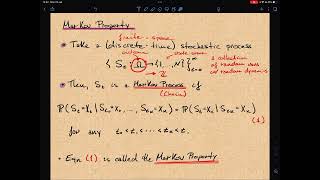 Markov Property
finite-space
• Take a (discrete-time) stochastic process
outcome
state space
{ S_t : Ω → {1, …, N} }
ℤ
a collection of random vars w/ random dynamics
• Then, S_t is a Markov Process if
(chain)
P(S_t = X_t | S_{t_n} = X_n, …, S_{t_1} = X_1) = P(S_t = X_t | S_{t_n} = X_n)
(1)
for any t_1 < t_2 < ··· < t_n < t.
• Eqn (1) is called the Markov Property